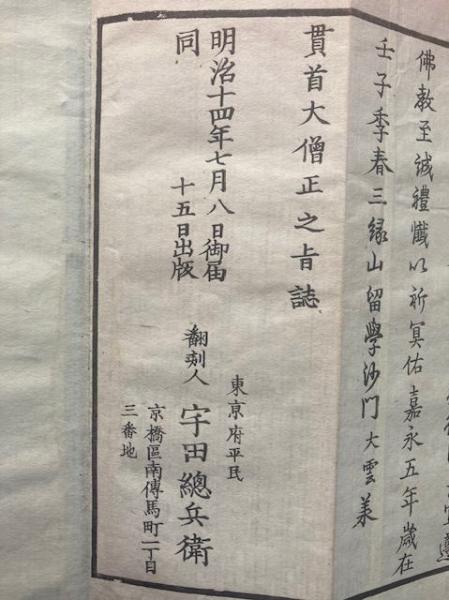 佛教至誠禮懺以祈冥佑嘉永五年歲在
壬子季春三緣山留學沙門大雲義
貫首大僧正之旨誌
明治十四年七月八日御届
同 十五日出版
東京府平民
翻刻人 宇田總兵衛
京橋區南傳馬町一丁目
三番地